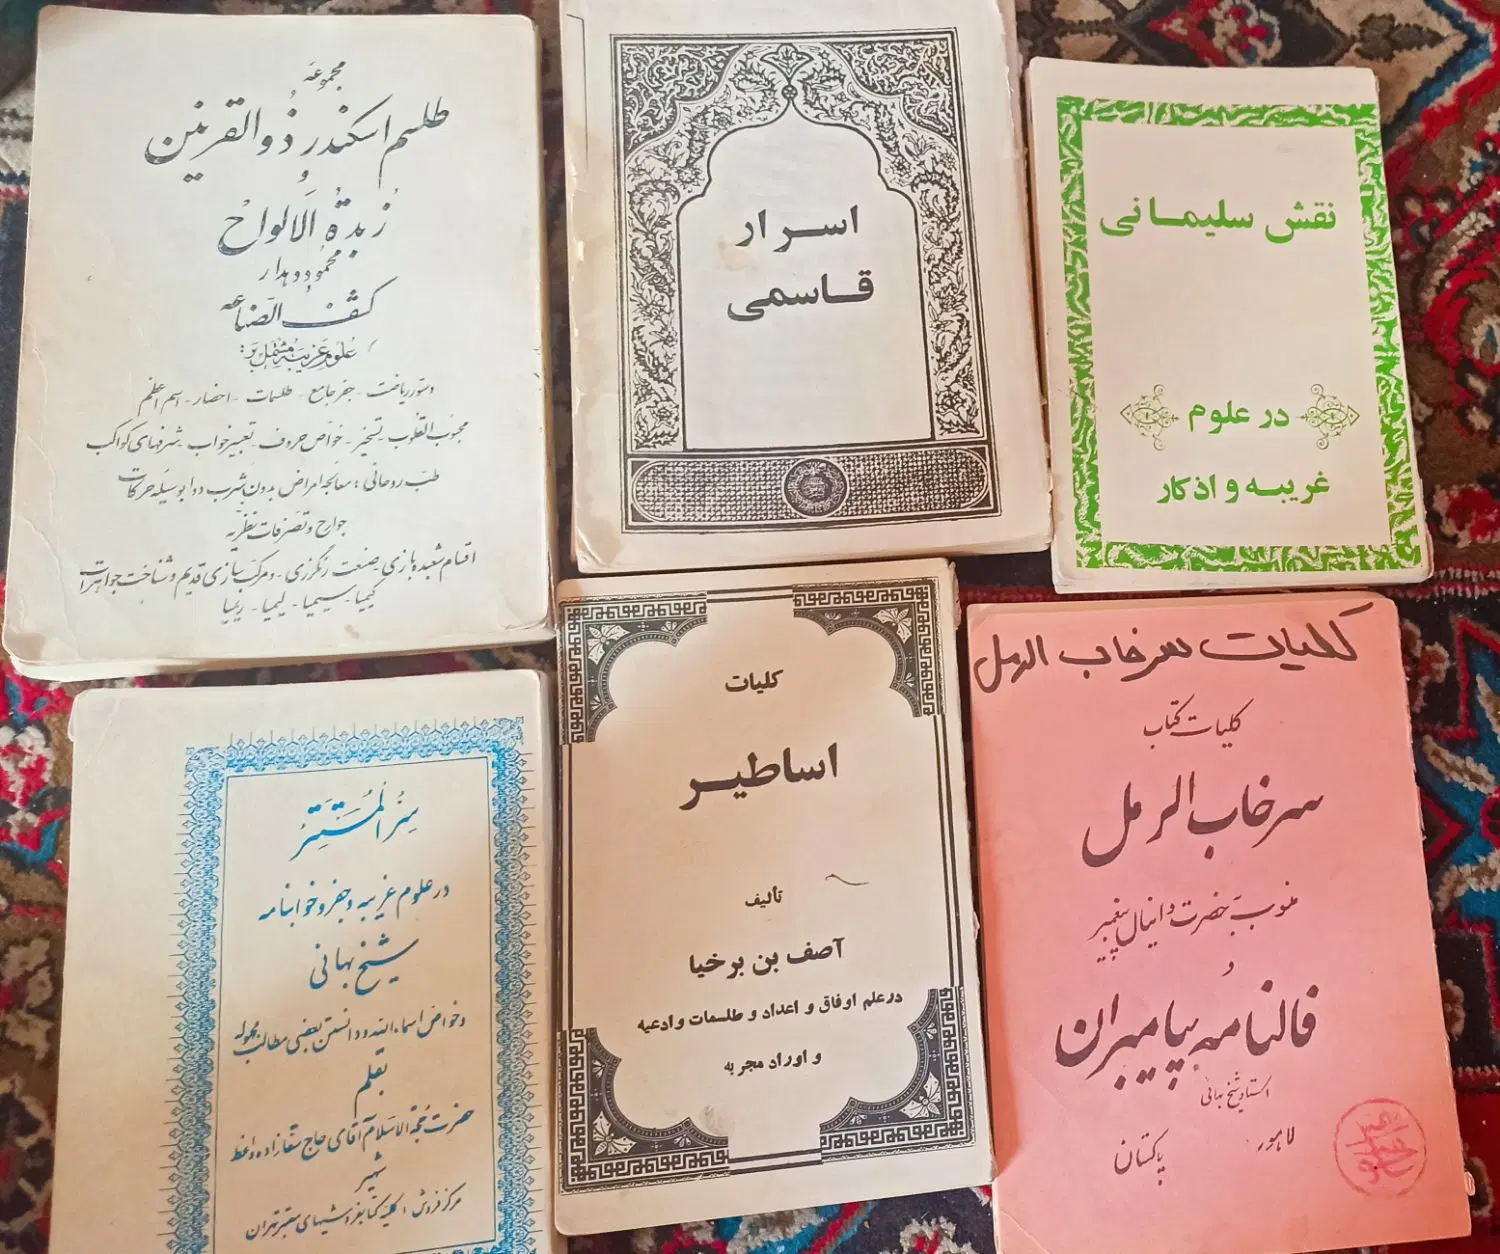 مجموعه
طلسم اسکندر ذوالقرنین
و
زبدة الالواح
محمود دهدار
کشف الصناعه
علوم غریبه مشتمل بر:
دستور ریاضت - جفر جامع - طلسمات - احضار - اسم اعظم
محبوب القلوب - تسخیر - خواص حروف - تعبیر خواب - شرفهای کواکب
طب روحانی: معالجه امراض بدون شرب دوا بوسیله حرکات
جوارح و تصرفات نظریه
اقسام شعبده بازی صنعت رنگرزی - و مرکب سازی قدیم و شناخت جواهرات
کیمیا - سیمیا - لیمیا - ریمیا
اسرار
قاسمی
نقش سلیمانی
در علوم
غریبه و اذکار
سرُّ المُستَتِر
در علوم غریبه و جفر و خوابنامه
شیخ بهائی
و خواص اسماء الله و دانستن بعضی مطالب مجهوله
بقلم
حضرت حجة الاسلام آقای حاج سقازاده واعظ
شهیر
مرکز فروش: کلیه کتابفروشیهای معتبر تهران
کلیات
اساطیر
تألیف
آصف بن برخیا
در علم اوفاق و اعداد و طلسمات و ادعیه
و اوراد مجربه
کلیات سرخاب الرمل
کلیات کتاب
سرخاب الرمل
منسوب به حضرت دانیال پیغمبر
و
فالنامه پیامبران
استاد شیخ بهائی
لاهور
پاکستان